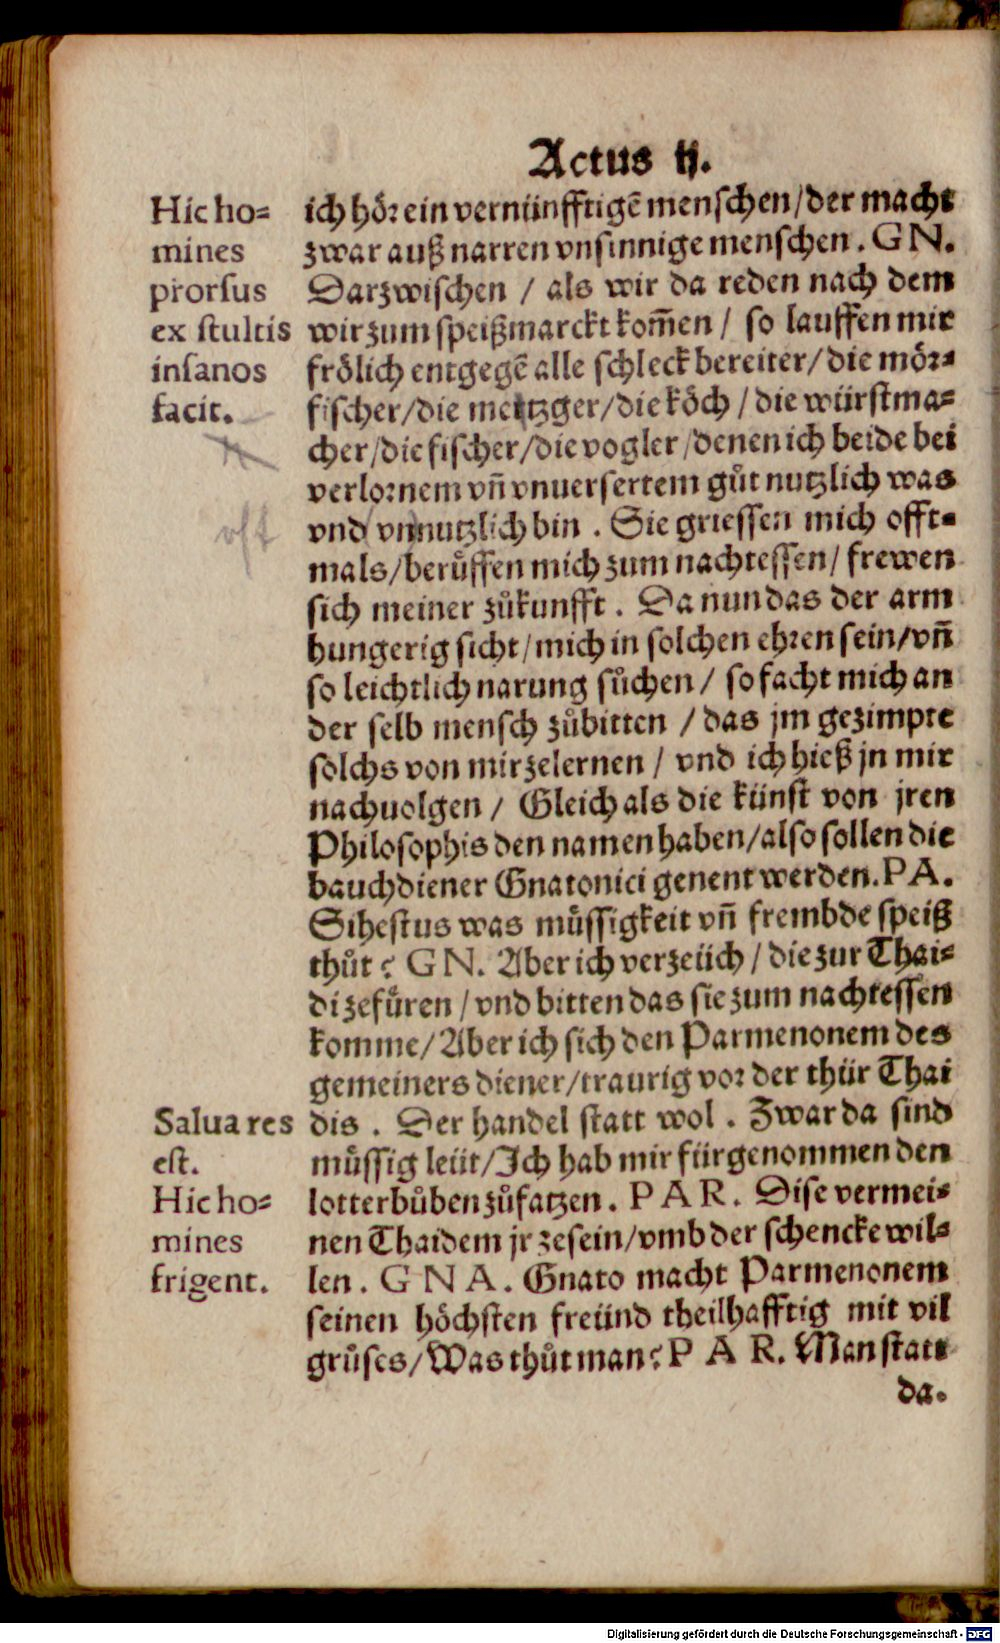 Actus ij.
Hic ho=
mines
prorsus
ex stultis
insanos
facit.
ich hör ein vernünfftigē menschen/der macht
zwar auß narren vnsinnige menschen. GN.
Darzwischen / als wir da reden nach dem
wir zum speißmarckt kom̄en / so lauffen mir
frölich entgegē alle schleckbereiter/die mör=
fischer/die metzger/die köch / die würstma=
cher/die fischer/die vogler/denen ich beide bei
verlornem vn̄ vnuersertem gůt nutzlich was
vnd vnnutzlich bin. Sie griessen mich offt=
oft
mals/berůffen mich zum nachtessen/ frewen
sich meiner zůkunfft. Da nun das der arm
hungerig sicht/mich in solchen ehren sein/vn̄
so leichtlich narung sůchen / so facht mich an
der selb mensch zůbitten / das jm gezimpte
solchs von mir zelernen / vnd ich hieß jn mir
nachuolgen / Gleich als die künst von jren
Philosophis den namen haben/also sollen die
bauchdiener Gnatonici genent werden. PA.
Sihestus was müssigkeit vn̄ frembde speiß
thůt? GN. Aber ich verzeüch / die zur Thai=
di zefüren / vnd bitten das sie zum nachtessen
komme/Aber ich sich den Parmenonem des
gemeiners diener/traurig vor der thür Thai
Salua res
est.
dis. Der handel statt wol. Zwar da sind
müssig leüt/Ich hab mir fürgenommen den
Hic ho=
mines
frigent.
lotterbůben zůfatzen. PAR. Dise vermei=
nen Thaidem jr zesein/vmb der schencke wil=
len. GNA. Gnato macht Parmenonem
seinen höchsten freünd theilhafftig mit vil
grůses/Was thůt man? PAR. Man statt
da.
Digitalisierung gefördert durch die Deutsche Forschungsgemeinschaft - DFG